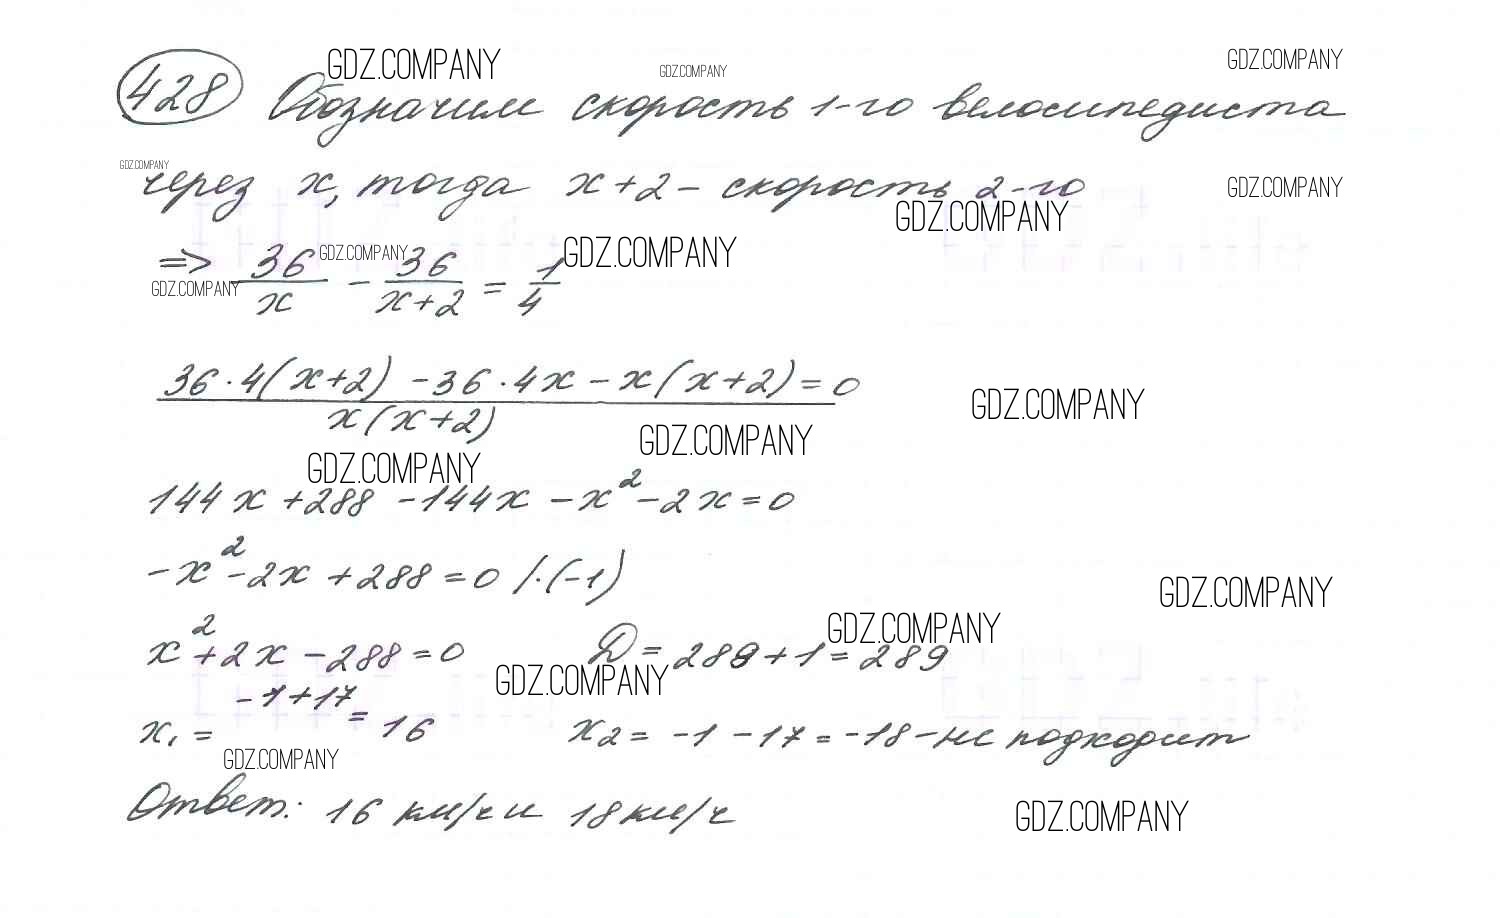 GDZ.COMPANY GDZ.COMPANY GDZ.COMPANY
428 Обозначим скорость 1-го велосипедиста
GDZ.COMPANY
через x, тогда x + 2 - скорость 2-го GDZ.COMPANY
GDZ.COMPANY
=> 36/x - 36/(x+2) = 1/4 GDZ.COMPANY GDZ.COMPANY
GDZ.COMPANY
36·4(x+2) - 36·4x - x(x+2) = 0
x(x+2) GDZ.COMPANY
GDZ.COMPANY
GDZ.COMPANY
144x + 288 - 144x - x² - 2x = 0
-x² - 2x + 288 = 0 /·(-1)
GDZ.COMPANY
GDZ.COMPANY
x² + 2x - 288 = 0 D = 288 + 1 = 289
GDZ.COMPANY
x₁ = -1+17 = 16 x₂ = -1 - 17 = -18 - не подходит
GDZ.COMPANY
Ответ: 16 км/ч и 18 км/ч GDZ.COMPANY